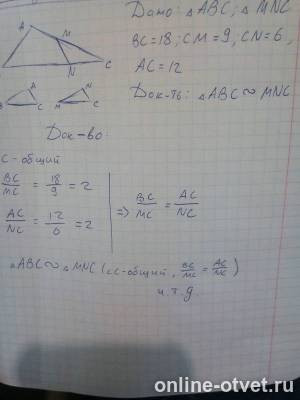 Дано: △ABC; △ MNC
BC=18; CM=9, CN=6,
AC=12
Док-ть: △ABC ∾ MNC
A
M
N
C
A
B
C
M
N
C
Док-во:
C - общий
BC/MC = 18/9 = 2
AC/NC = 12/6 = 2
=> BC/MC = AC/NC
△ABC ∾ △MNC (∠C-общий, BC/MC = AC/NC)
ч.т.д.
online-otvet.ru